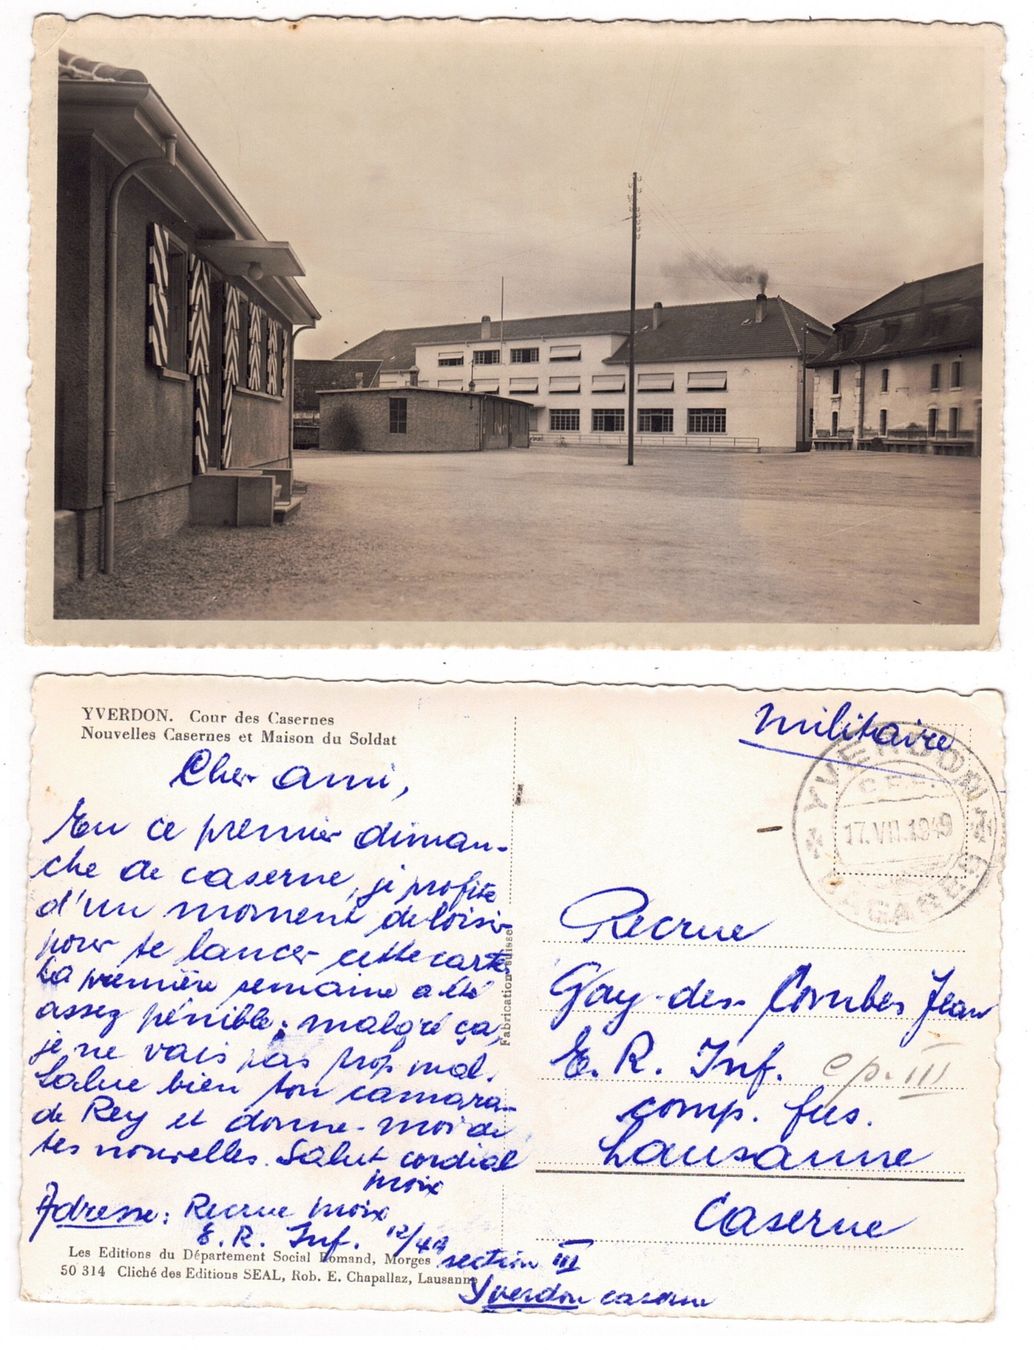 YVERDON. Cour des Casernes
Nouvelles Casernes et Maison du Soldat
Cher ami,
En ce premier diman-
che de caserne, je profite
d'un moment de loisir
pour te lancer cette carte
La première semaine a été
assez pénible; malgré ça,
je ne vais pas trop mal.
Salue bien ton camara-
de Rey et donne-moi de
tes nouvelles. Salut cordial
Moix
Adresse: Recrue Moix
E. R. Inf. 12/49
section III
Yverdon caserne
Les Editions du Département Social Romand, Morges
50 314 Cliché des Editions SEAL, Rob. E. Chapallaz, Lausanne
Fabrication suisse
Militaire
YVERDON
C.F.F.
17.VII.1949
BAGAGES
Recrue
Gay-des-Combes Jean
E. R. Inf. cp. III
comp. fus.
Lausanne
Caserne